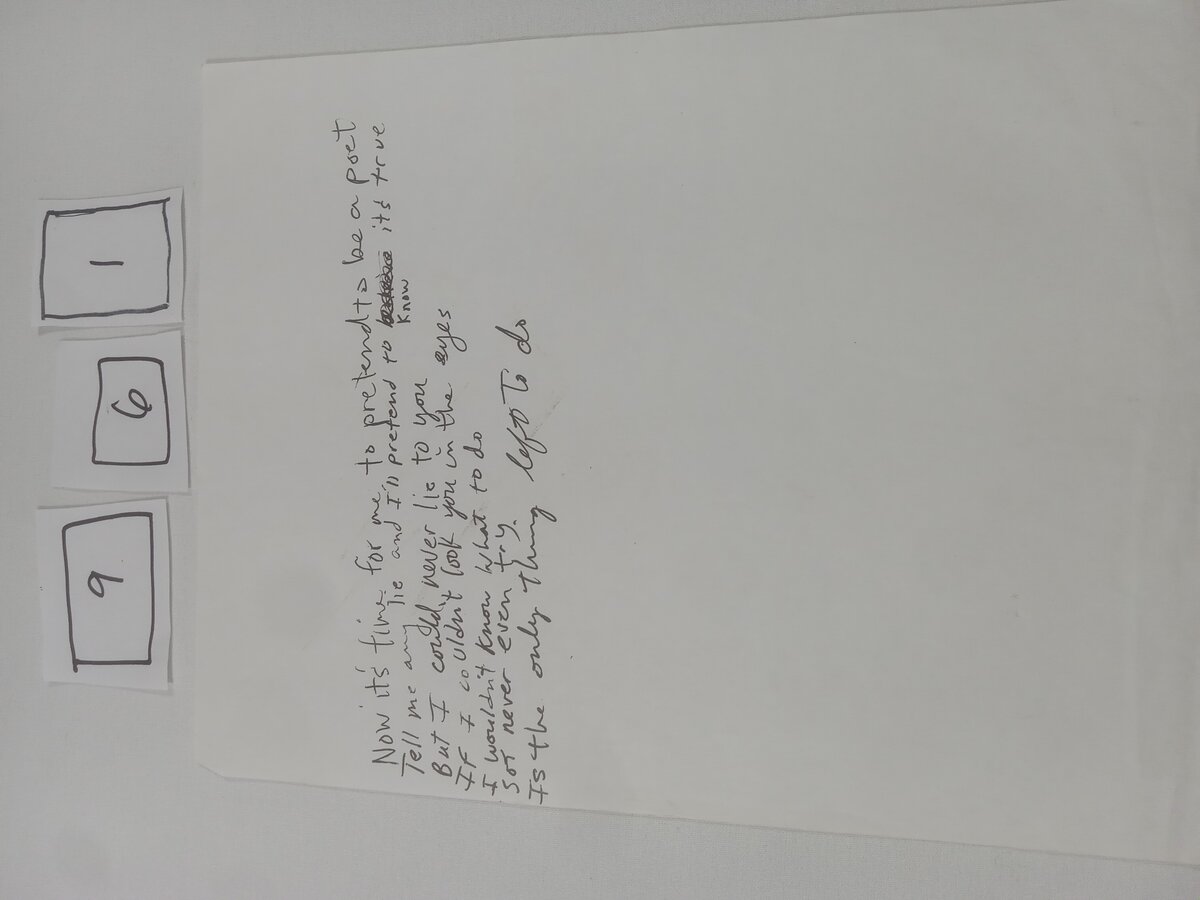 9 6 1
Now it's time for me to pretend to be a poet
Tell me any lie and I'll pretend to its true
know
But I could never lie to you
If I couldn't look you in the eyes
I wouldn't know what to do
So I never even try.
Is the only thing left to do